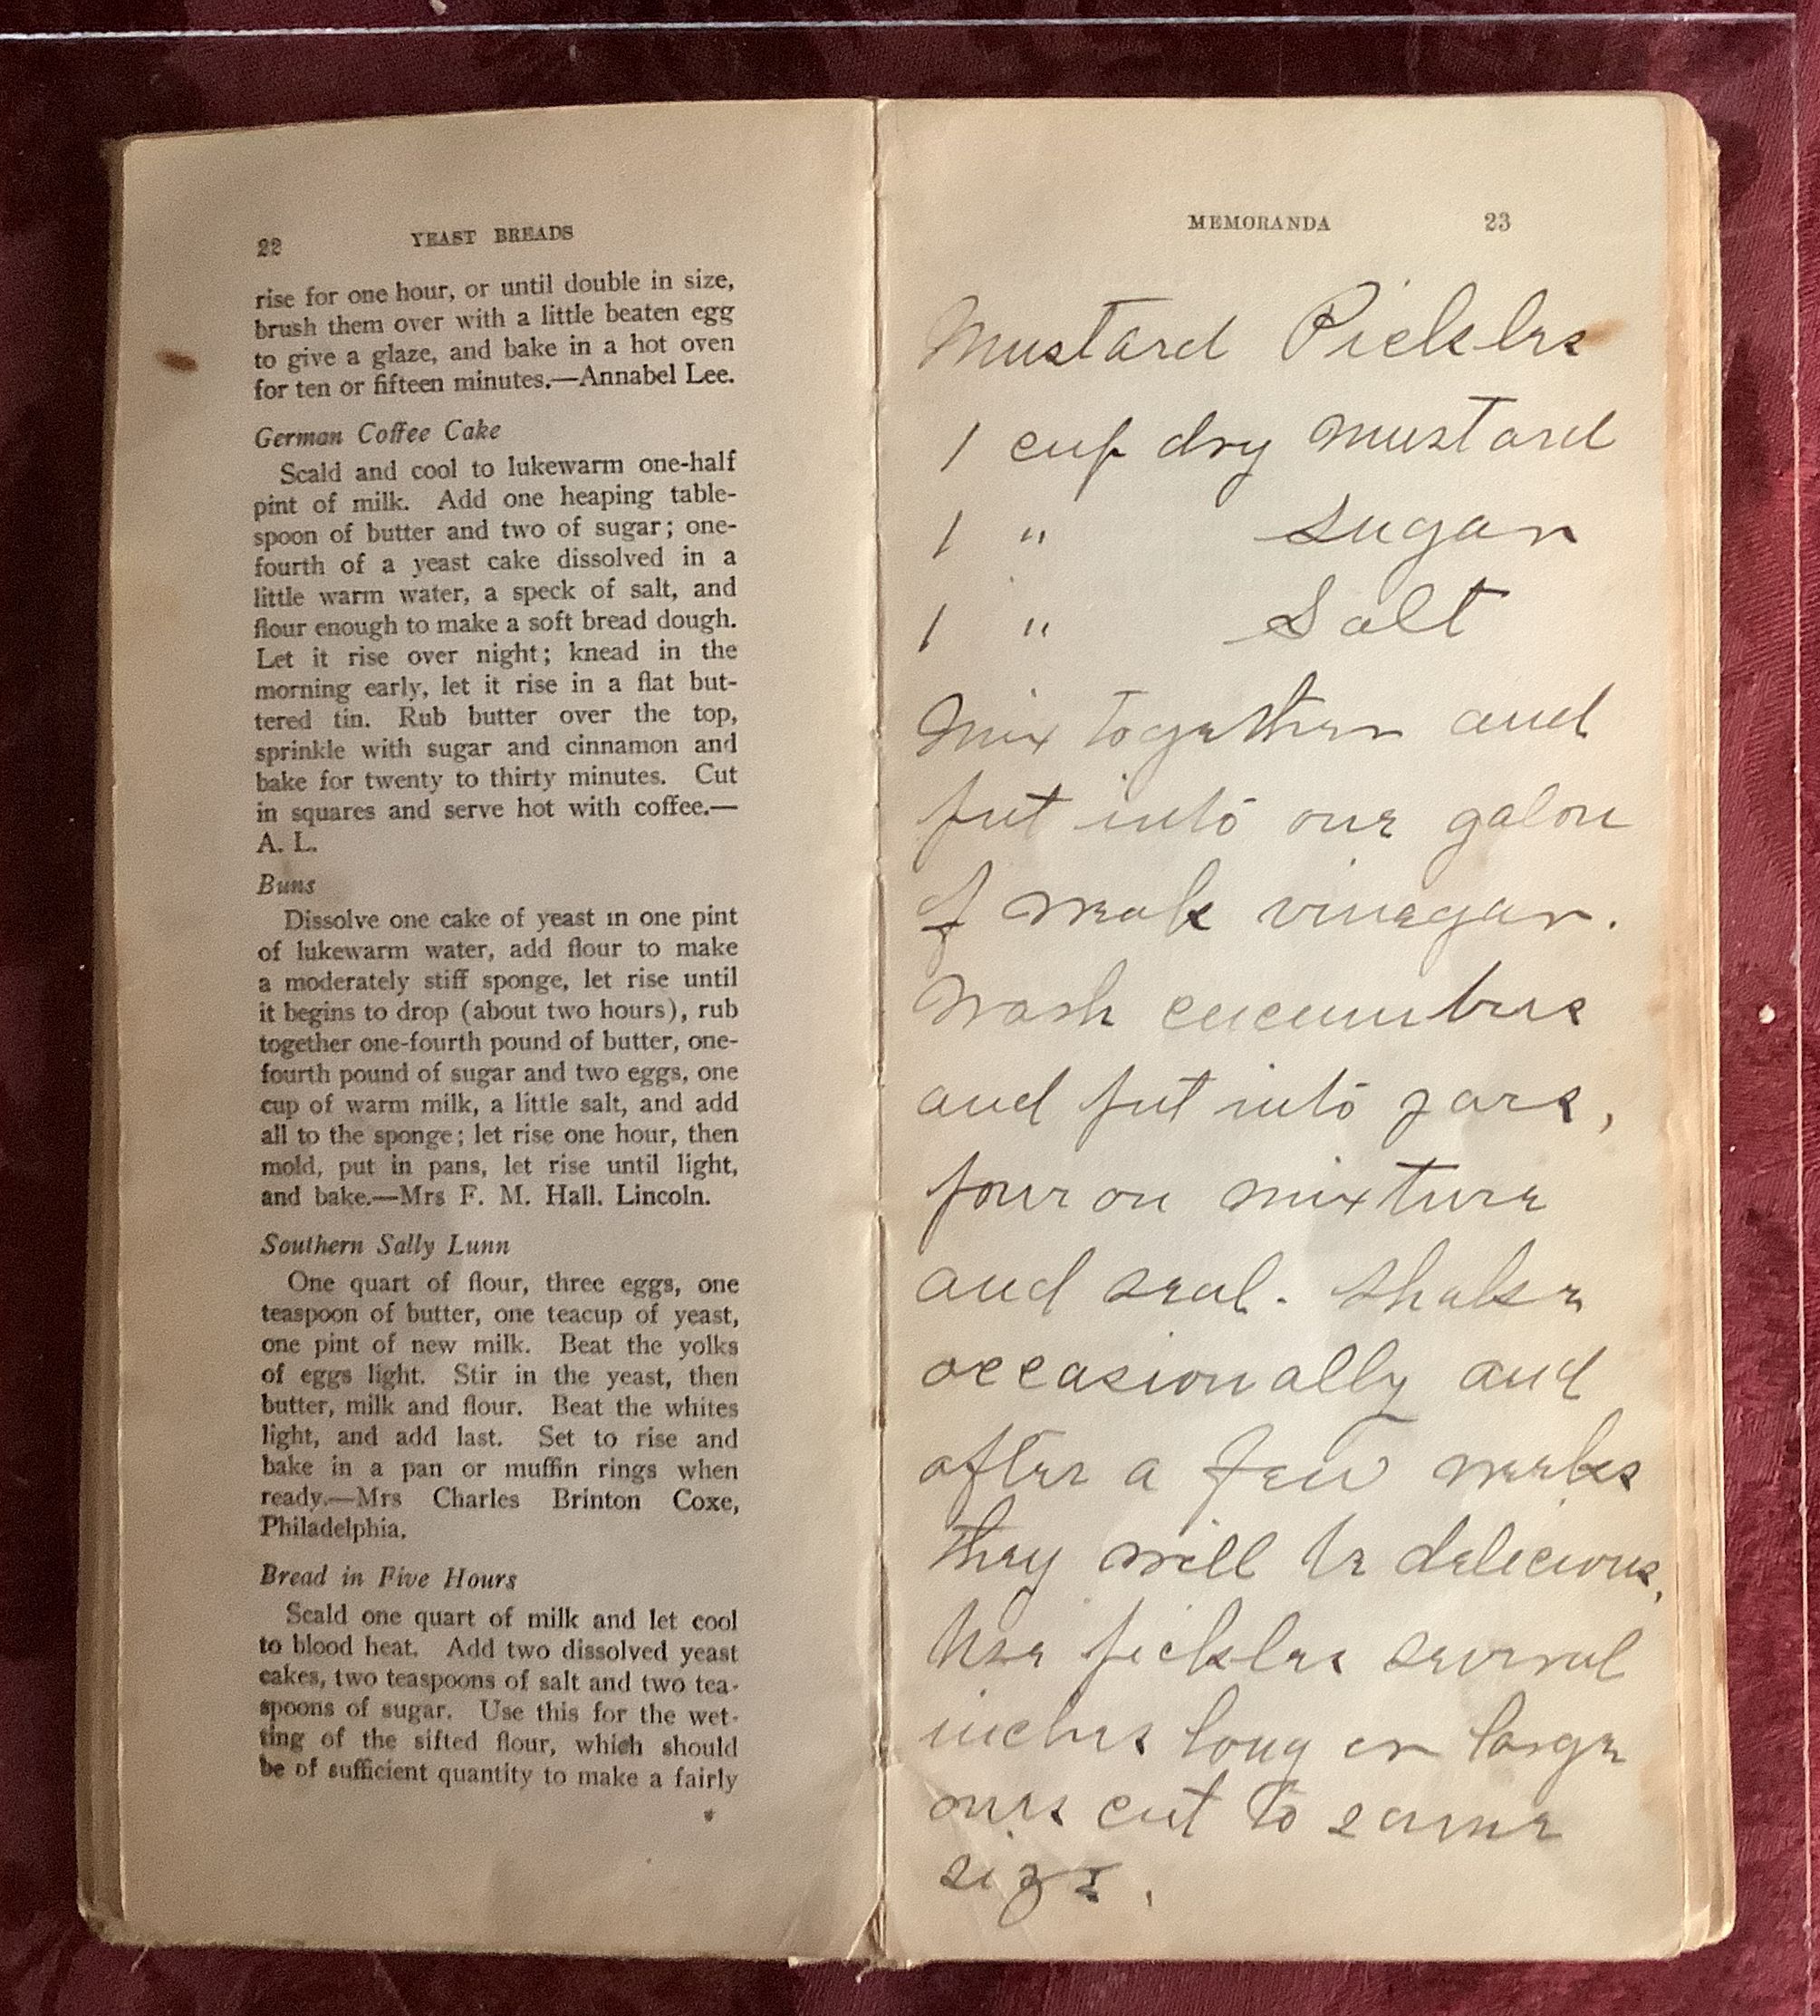 22 YEAST BREADS
rise for one hour, or until double in size,
brush them over with a little beaten egg
to give a glaze, and bake in a hot oven
for ten or fifteen minutes.—Annabel Lee.
German Coffee Cake
Scald and cool to lukewarm one-half
pint of milk. Add one heaping table-
spoon of butter and two of sugar; one-
fourth of a yeast cake dissolved in a
little warm water, a speck of salt, and
flour enough to make a soft bread dough.
Let it rise over night; knead in the
morning early, let it rise in a flat but-
tered tin. Rub butter over the top,
sprinkle with sugar and cinnamon and
bake for twenty to thirty minutes. Cut
in squares and serve hot with coffee.—
A. L.
Buns
Dissolve one cake of yeast in one pint
of lukewarm water, add flour to make
a moderately stiff sponge, let rise until
it begins to drop (about two hours), rub
together one-fourth pound of butter, one-
fourth pound of sugar and two eggs, one
cup of warm milk, a little salt, and add
all to the sponge; let rise one hour, then
mold, put in pans, let rise until light,
and bake.—Mrs F. M. Hall. Lincoln.
Southern Sally Lunn
One quart of flour, three eggs, one
teaspoon of butter, one teacup of yeast,
one pint of new milk. Beat the yolks
of eggs light. Stir in the yeast, then
butter, milk and flour. Beat the whites
light, and add last. Set to rise and
bake in a pan or muffin rings when
ready.—Mrs Charles Brinton Coxe,
Philadelphia.
Bread in Five Hours
Scald one quart of milk and let cool
to blood heat. Add two dissolved yeast
cakes, two teaspoons of salt and two tea-
spoons of sugar. Use this for the wet-
ting of the sifted flour, which should
be of sufficient quantity to make a fairly
MEMORANDA 23
Mustard Pickles
1 cup dry mustard
1 " Sugar
1 " Salt
Mix together and
put into one galon
of weak vinegar.
Wash cucumbers
and put into jars,
pour on mixture
and seal. Shake
occasionally and
after a few weeks
they will be delicious.
Use pickles several
inches long or large
ones cut to same
size.